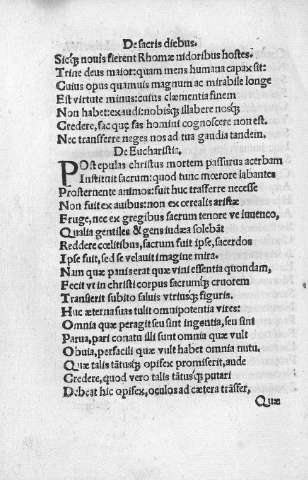 De sacris diebus.
Sicq; nouis fierent Rhomæ nidoribus hostes.
Trine deus maior: quam mens humana capax sit:
Cuius opus quamuis magnum ac mirabile longe
Est virtute minus: cuius clæmentia finem
Non habet: exaudi: nobisq; illabere nosq;
Credere, fac quę fas homini cognoscere non est.
Nec transferre neges nos ad tua gaudia tandem.
De Eucharistia.
POst epulas christus mortem passurus acerbam
Instituit sacrum: quod tunc mœrore labantes
Prosternente animos: fuit huc trasferre necesse
Non fuit ex auibus: non ex cerealis aristæ
Fruge, nec ex gregibus sacrum tenore ve iuuenco,
Qualia gentiles & gens iudæa solebãt
Reddere cœlitibus, sacrum fuit ipse, sacerdos
Ipse fuit, sed se velauit imagine mira.
Nam quæ panis erat quæ vini essentia quondam,
Fecit vt in christi corpus sacrumq; cruorem
Transerit subito saluis vtriusq; figuris.
Huc æternas tulit omnipotentia vires:
Omnia quæ peragit seu sunt ingentia, seu sint
Parua, pari conatu illi sunt omnia quæ vult
Obuia, perfacili quæ vult habet omnia nutu.
Quæ talis tãtusq; opifex promiserit, aude
Credere, quod vero talis tãtusq; putari
Debeat hic opifex, oculos ad cætera trãsfer,
Quæ